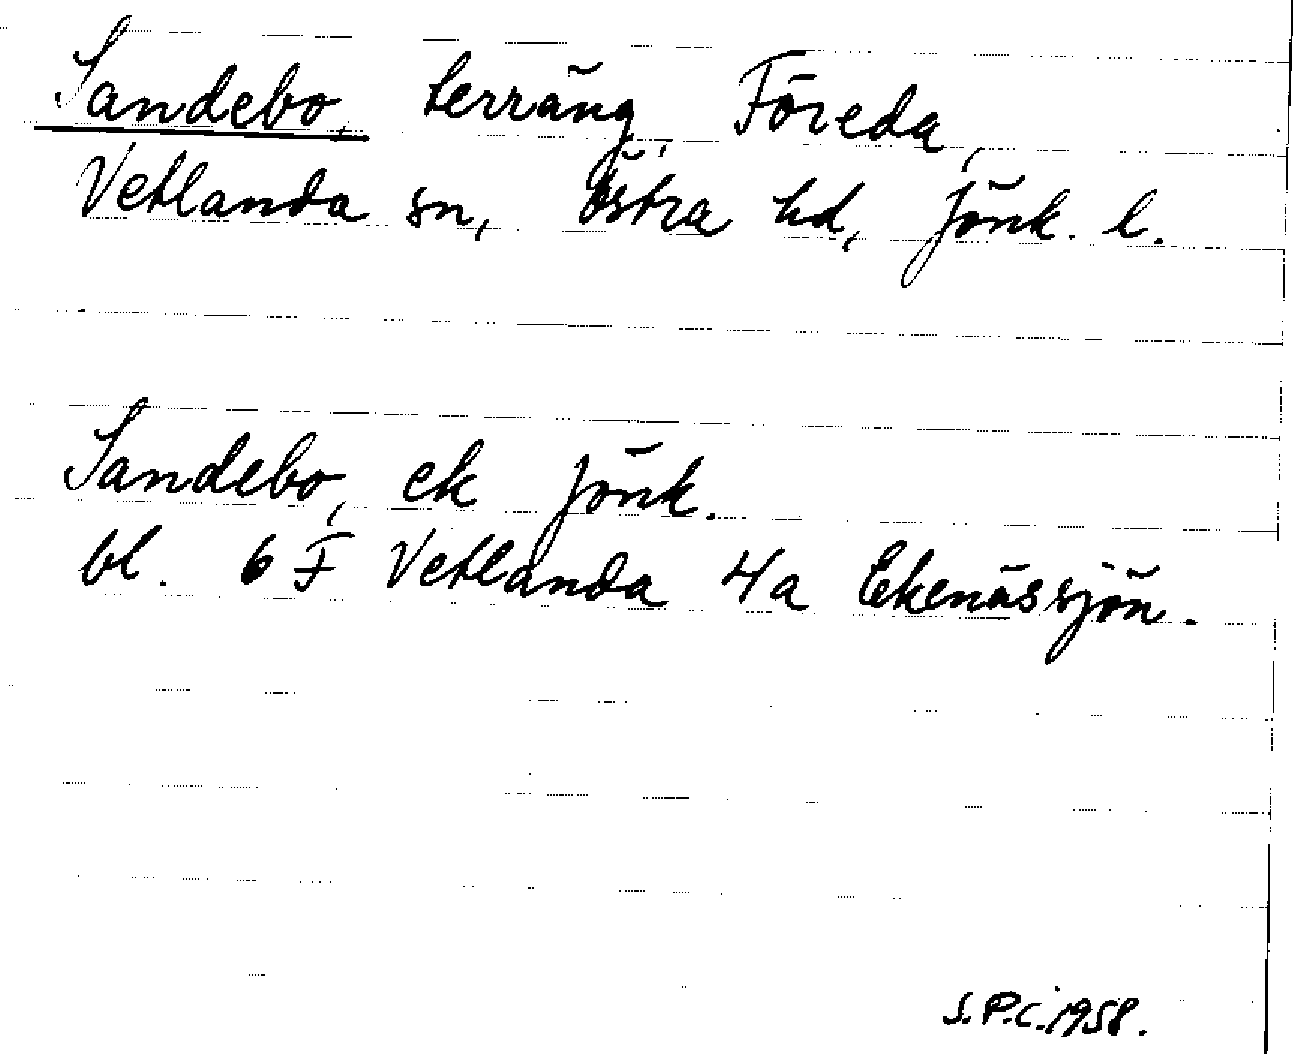 Sandebo, terräng, Föreda,
Vetlanda sn, Östra hd, Jönk. l.
Sandebo, ek Jönk.
bl. 6 F Vetlanda 4a Ekenässjön.
S.P.C. 1958.